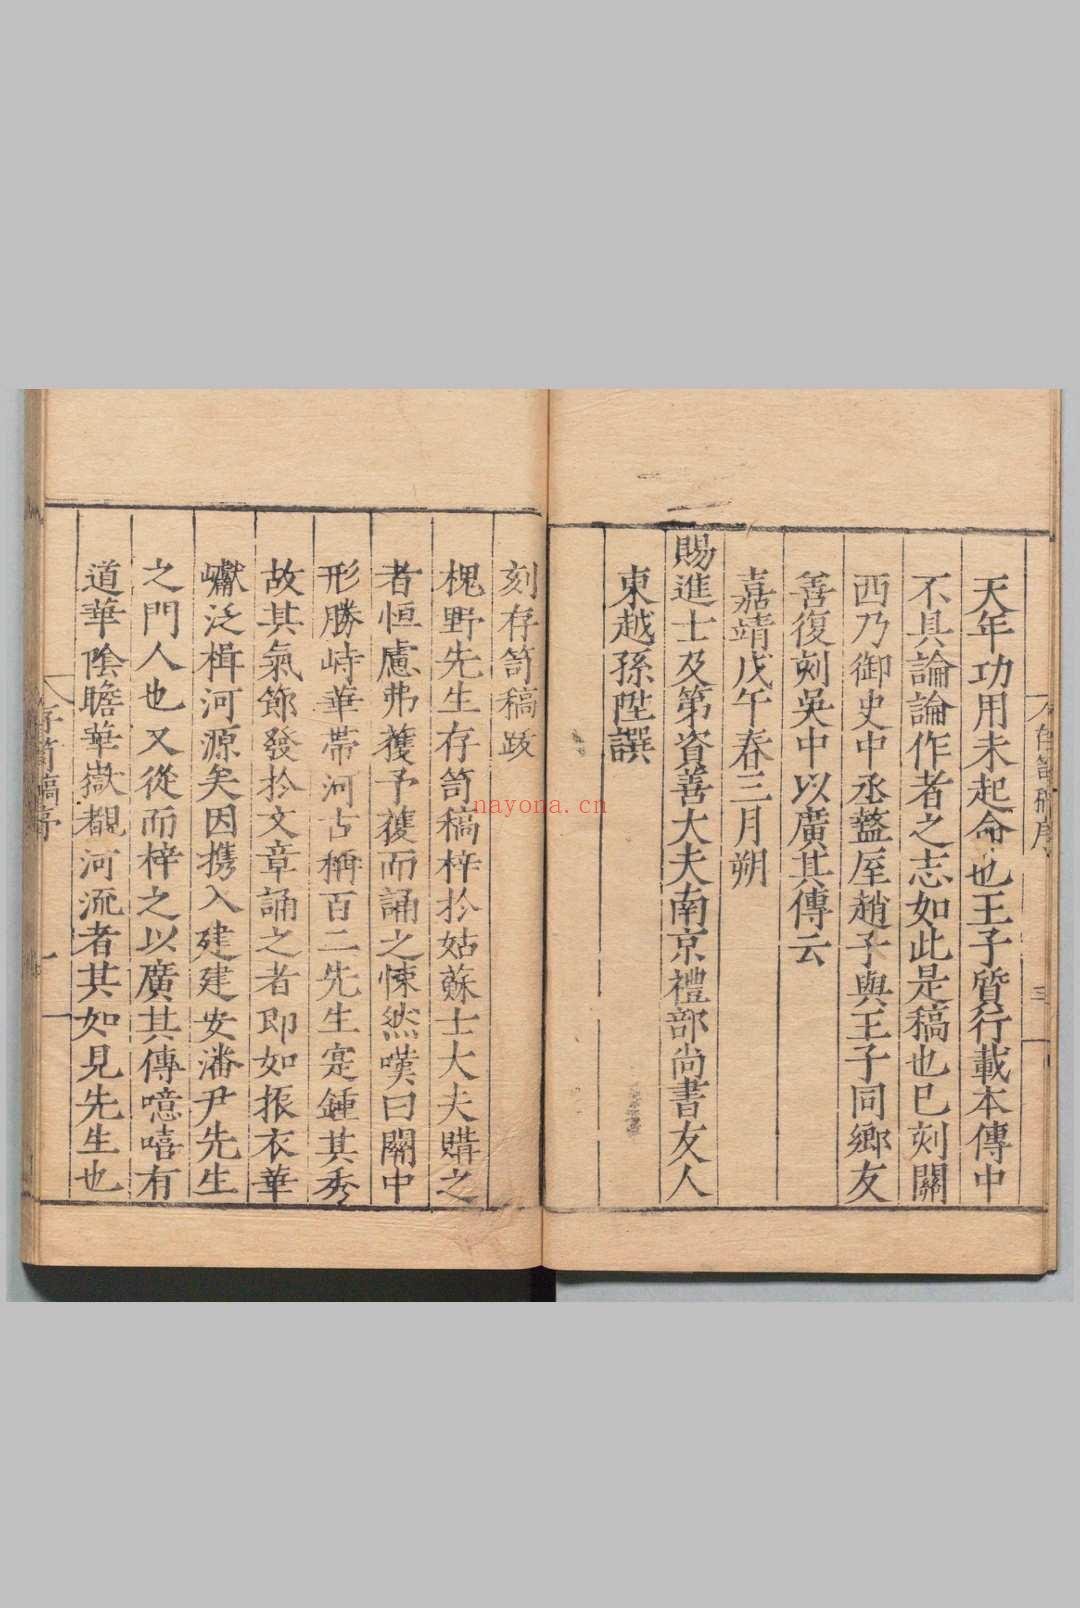 天年功用未起命也王子質行載本傳中
不具論論作者之志如此是稿也已刻關
西乃御史中丞盩厔趙子與王子同鄉友
善復刻吳中以廣其傳云
嘉靖戊午春三月朔
賜進士及第資善大夫南京禮部尚書友人
東越孫陞譔
刻存笥稿跋
槐野先生存笥稿梓於姑蘇士大夫購之
者恒慮弗獲予獲而誦之悚然嘆曰關中
形勝峙華帶河古稱百二先生寔鍾其秀
故其氣節發於文章誦之者即如振衣華
巘泛楫河源矣因携入建建安潘尹先生
之門人也又從而梓之以廣其傳噫嘻有
道華陰瞻華嶽觀河流者其如見先生也
存笥稿序
三
存笥稿序
一
nayona.cn